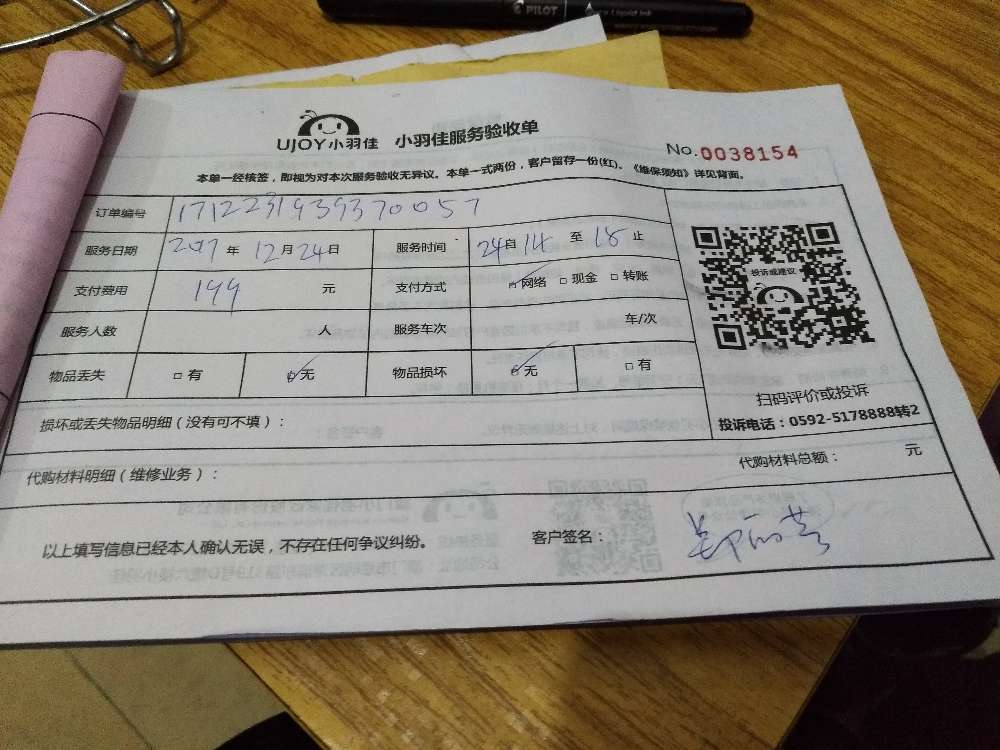 PILOT Liquid Ink
UJOY小羽佳 小羽佳服务验收单
No. 0038154
本单一经核签，即视为对本次服务验收无异议。本单一式两份，客户留存一份(红)。《维保须知》详见背面。
订单编号 1712231939370057
服务日期 2017年 12月24日 服务时间 24自 14 至 18 止
支付费用 199 元 支付方式 ☑网络 □现金 □转账
服务人数 人 服务车次 车/次
物品丢失 □有 ☑无 物品损坏 ☑无 □有
投诉或建议
扫码评价或投诉
投诉电话：0592-5178888转2
损坏或丢失物品明细（没有可不填）：
代购材料明细（维修业务）： 代购材料总额： 元
以上填写信息已经本人确认无误，不存在任何争议纠纷。 客户签名：